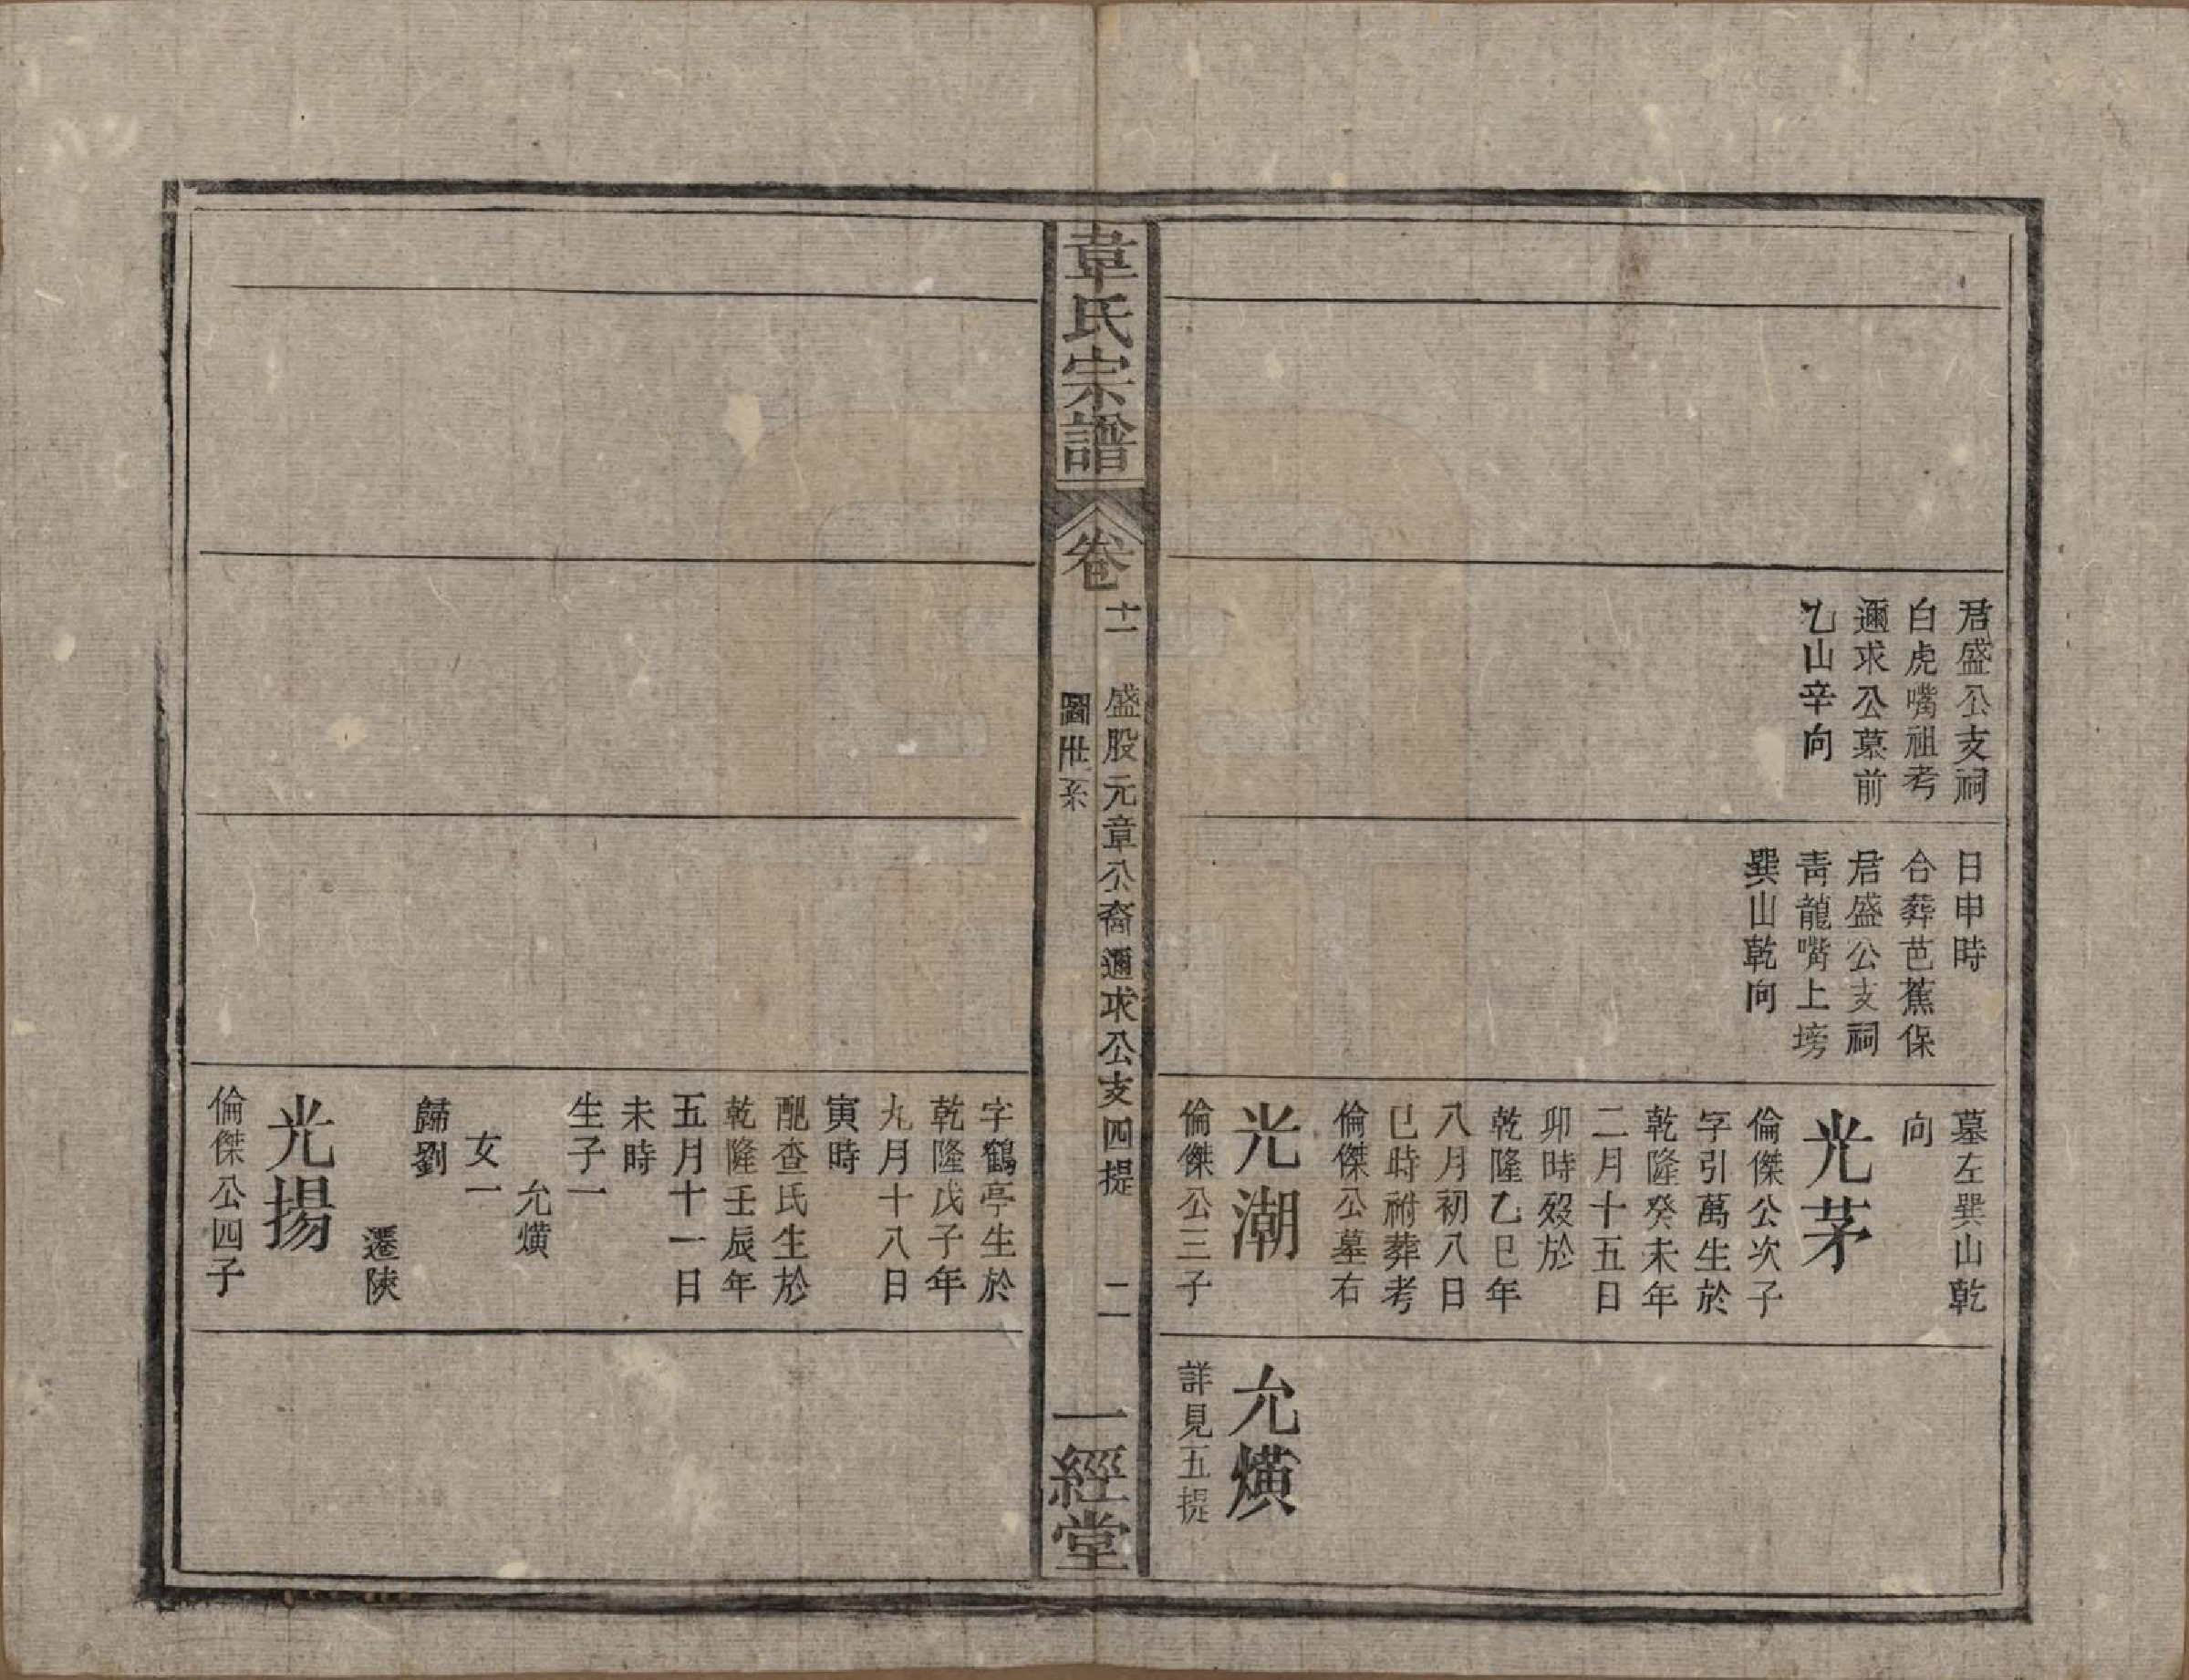 君盛公支祠
白虎嘴祖考
邇求公墓前
乙山辛向
日申時
合葬芭蕉保
君盛公支祠
靑龍嘴上塝
巽山乾向
墓左巽山乾
向
光茅
倫傑公次子
字引萬生於
乾隆癸未年
二月十五日
卯時歿於
乾隆乙巳年
八月初八日
巳時祔葬考
倫傑公墓右
光潮
倫傑公三子
允熿
詳見五提
韋氏宗譜
卷十一
盛股元章公裔邇求公支四提
圖世系
二
一經堂
字鶴亭生於
乾隆戊子年
九月十八日
寅時
配查氏生於
乾隆壬辰年
五月十一日
未時
生子一
允熿
女一
歸劉
遷陝
光揚
倫傑公四子